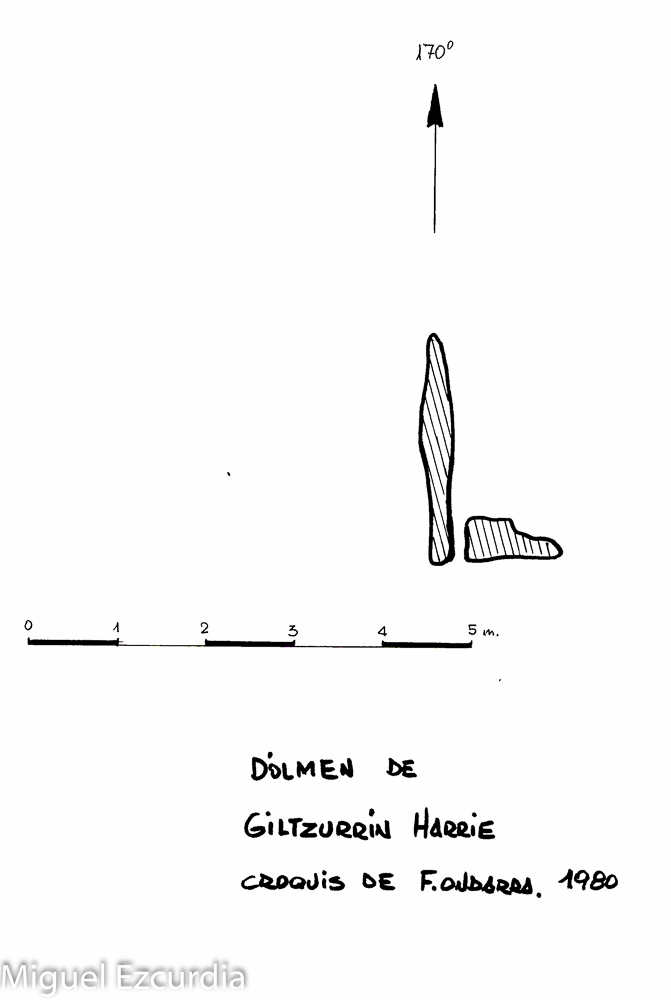 170º
0 1 2 3 4 5 m.
DÓLMEN DE
GILTZURRIN HARRIE
CROQUIS DE F. ONDARRA. 1980
Miguel Ezcurdia